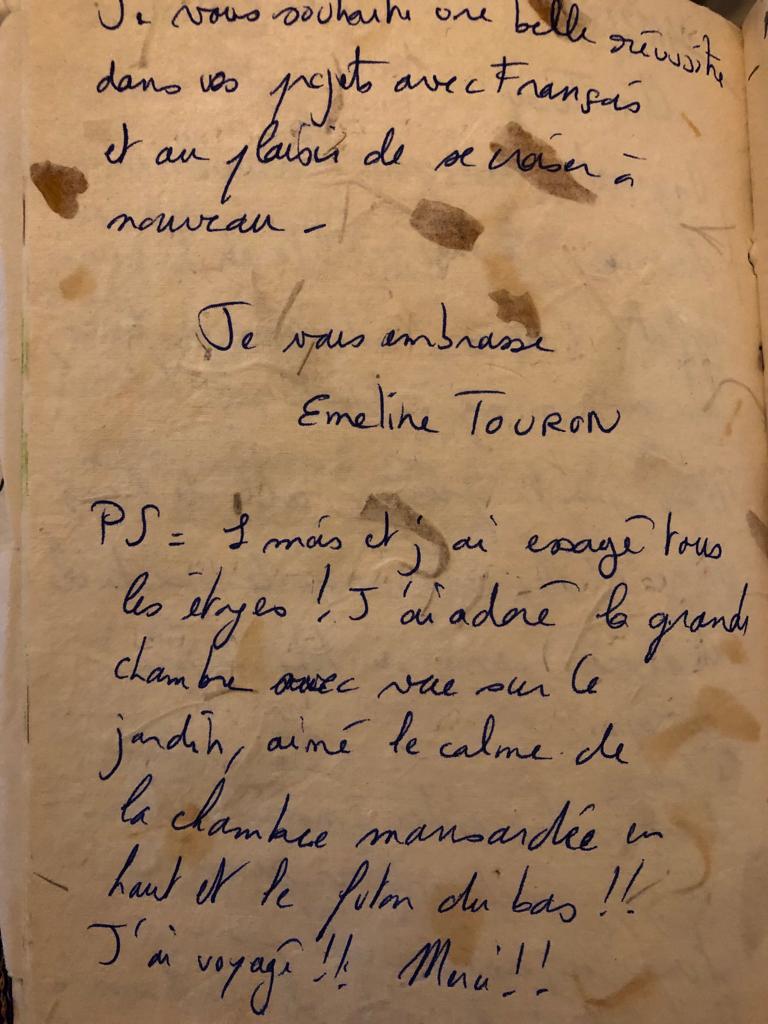 Je vous souhaite une belle réussite
dans vos projets avec François
et au plaisir de se croiser à
nouveau -
Je vous embrasse
Emeline TOURON
PS = 1 mois et j'ai essayé tous
les étages ! J'ai adoré la grande
chambre avec vue sur le
jardin, aimé le calme de
la chambre mansardée en
haut et le futon du bas !!
J'ai voyagé !!! Merci !!